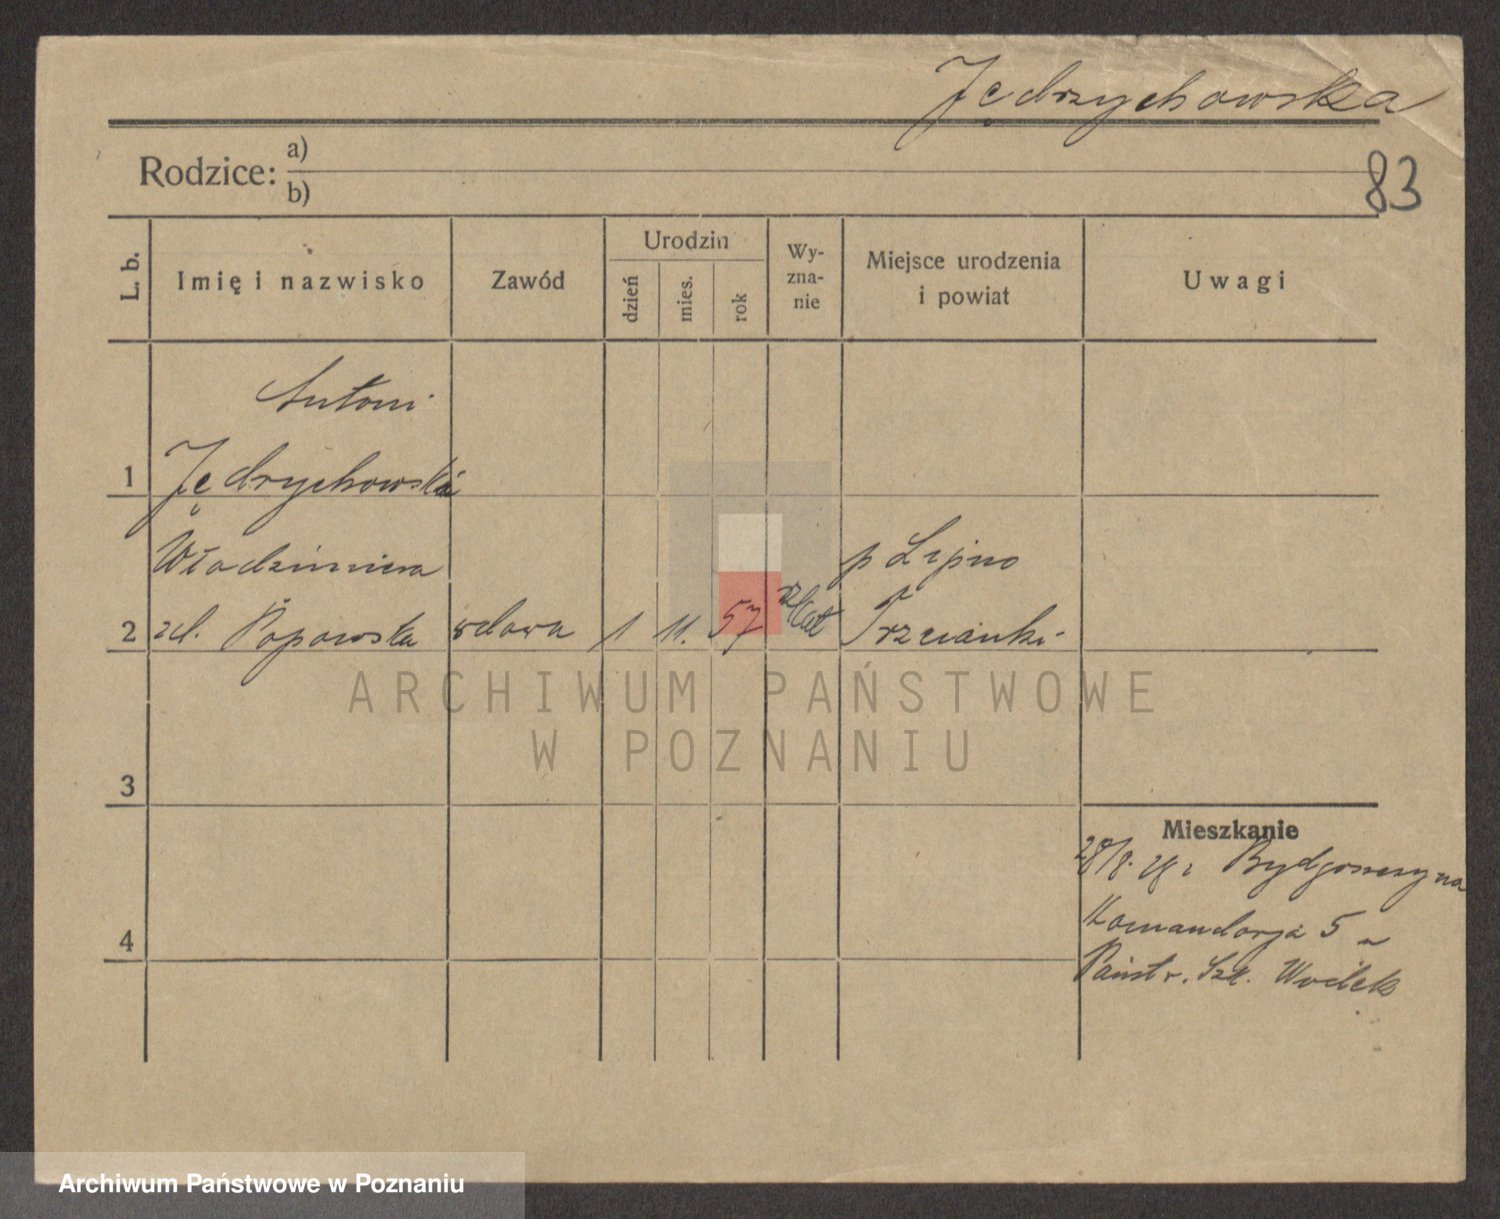 Jędrzychowska
83
Rodzice: a)
b)
L. b.
Imię i nazwisko
Zawód
Urodzin
dzień
mies.
rok
Wy-
zna-
nie
Miejsce urodzenia
i powiat
Uwagi
Antoni
1 Jędrychowski
Włodzimiera
p Lipno
2 zd. Popowska wdowa 1 11. 57 Rz Kat Trzcianki
3
4
Mieszkanie
28/8. 28 r Bydgoszczy na
Komandorja 5
Państw. Szk.
ARCHIWUM PAŃSTWOWE
W POZNANIU
Archiwum Państwowe w Poznaniu